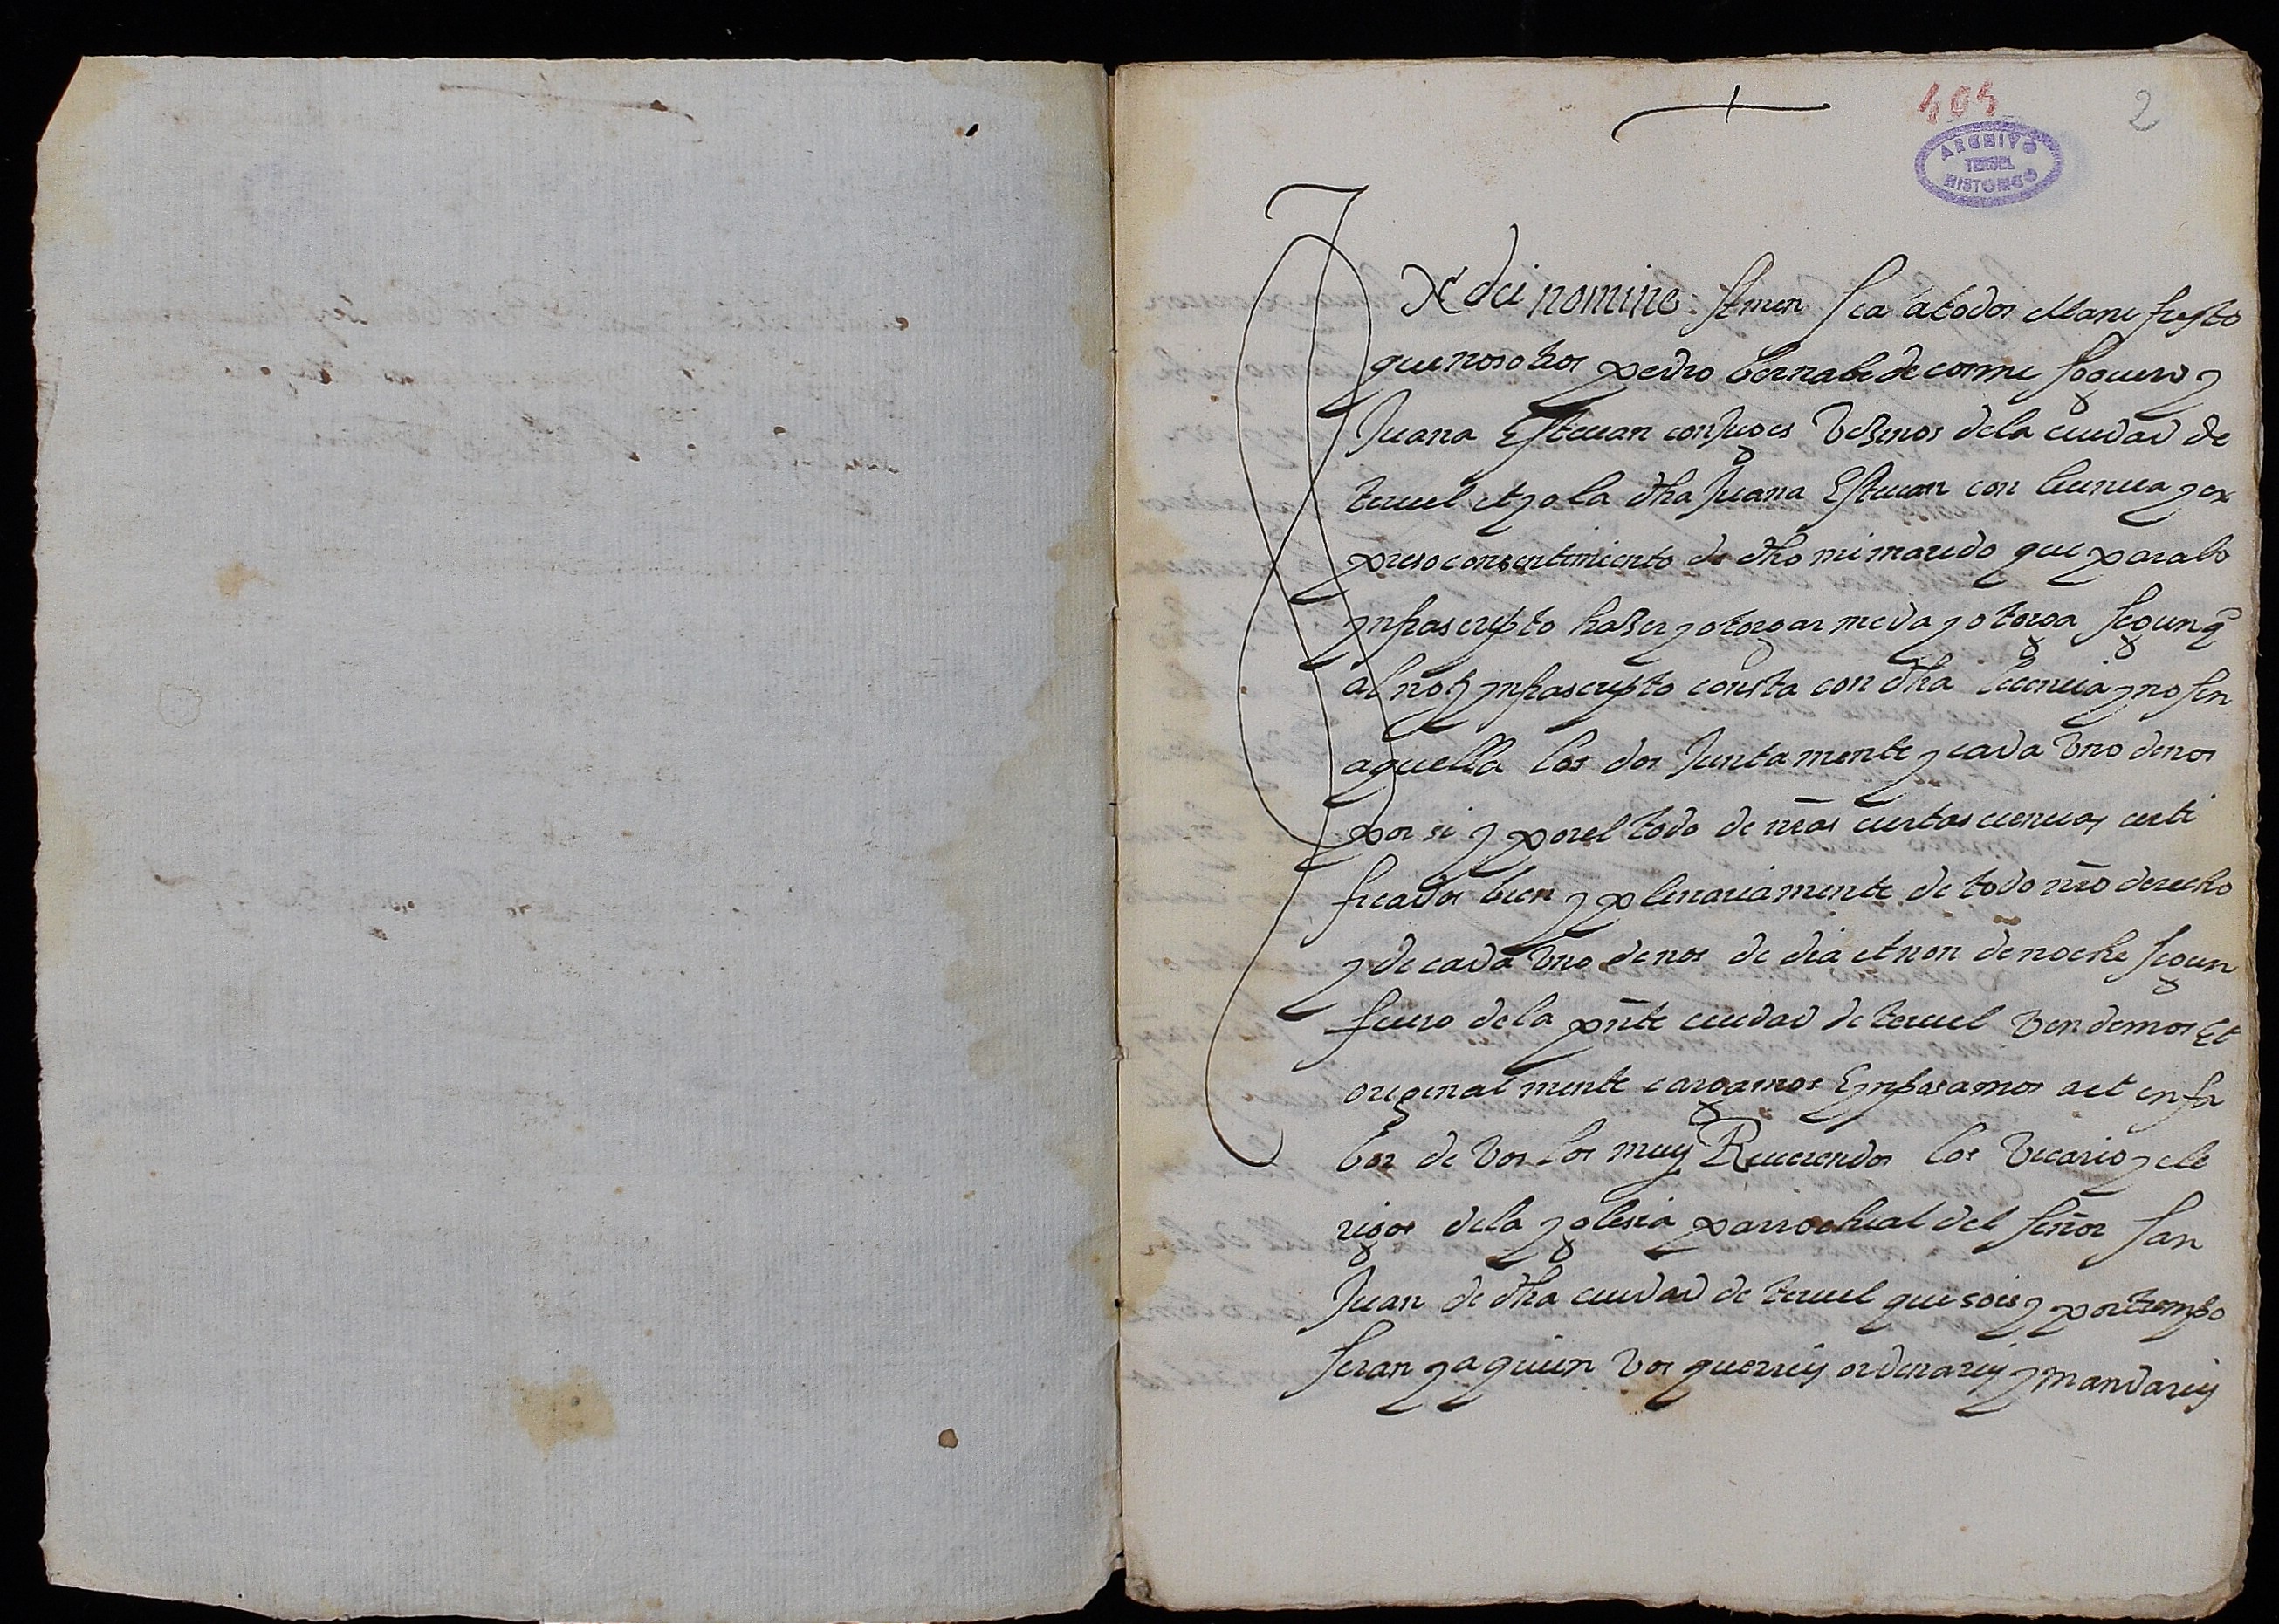 505
2
ARCHIVO
TERUEL
HISTORICO
In dei nomine. Amen sea a todos Manifiesto
que nosotros pedro bernabe de cosme soguero y
Juana Esteuan conjuges vezinos dela ciudad de
teruel et yo la dha Juana Esteuan con licencia y ex
preso consentimiento de dho mi marido que para lo
ynfrascripto hazer y otorgar me da y otorga segun q̃
al noț ynfrascripto consta con dha licencia y no sin
aquella los dos Juntamente y cada vno de nos
por si y por el todo de nr̃as ciertas ciencias certi
ficados bien y plenariamente de todo nr̃o derecho
y de cada vno de nos de dia et non de noche segun
fuero dela pñte ciudad de teruel vendemos Et
originalmente cargamos Eynposamos a et en fa
bor de vos los muy Reuerendos los vicario y cle
rigos dela yglesia parrochial del señor san
Juan de dha ciudad de teruel que sois y por tiempo
seran y a quien vos querreis ordenareis y mandareis